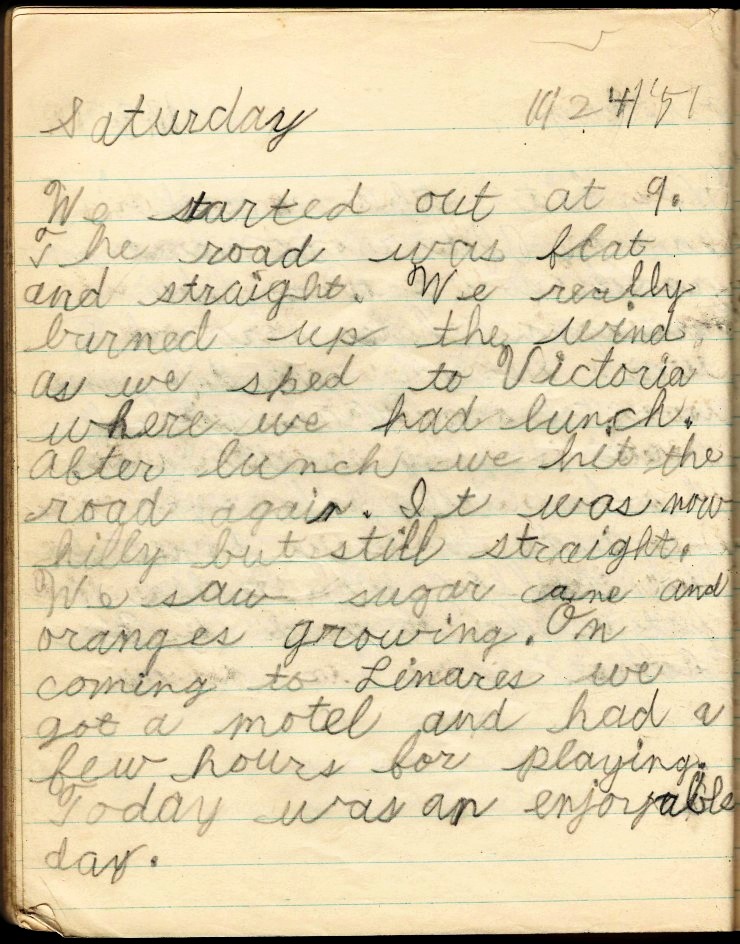 Saturday 11/24/51
We started out at 9.
The road was flat
and straight. We really
burned up the wind
as we sped to Victoria
where we had lunch.
After lunch we hit the
road again. It was now
hilly but still straight.
We saw sugar cane and
oranges growing. On
coming to Linares we
got a motel and had a
few hours for playing.
Today was an enjoyable
day.